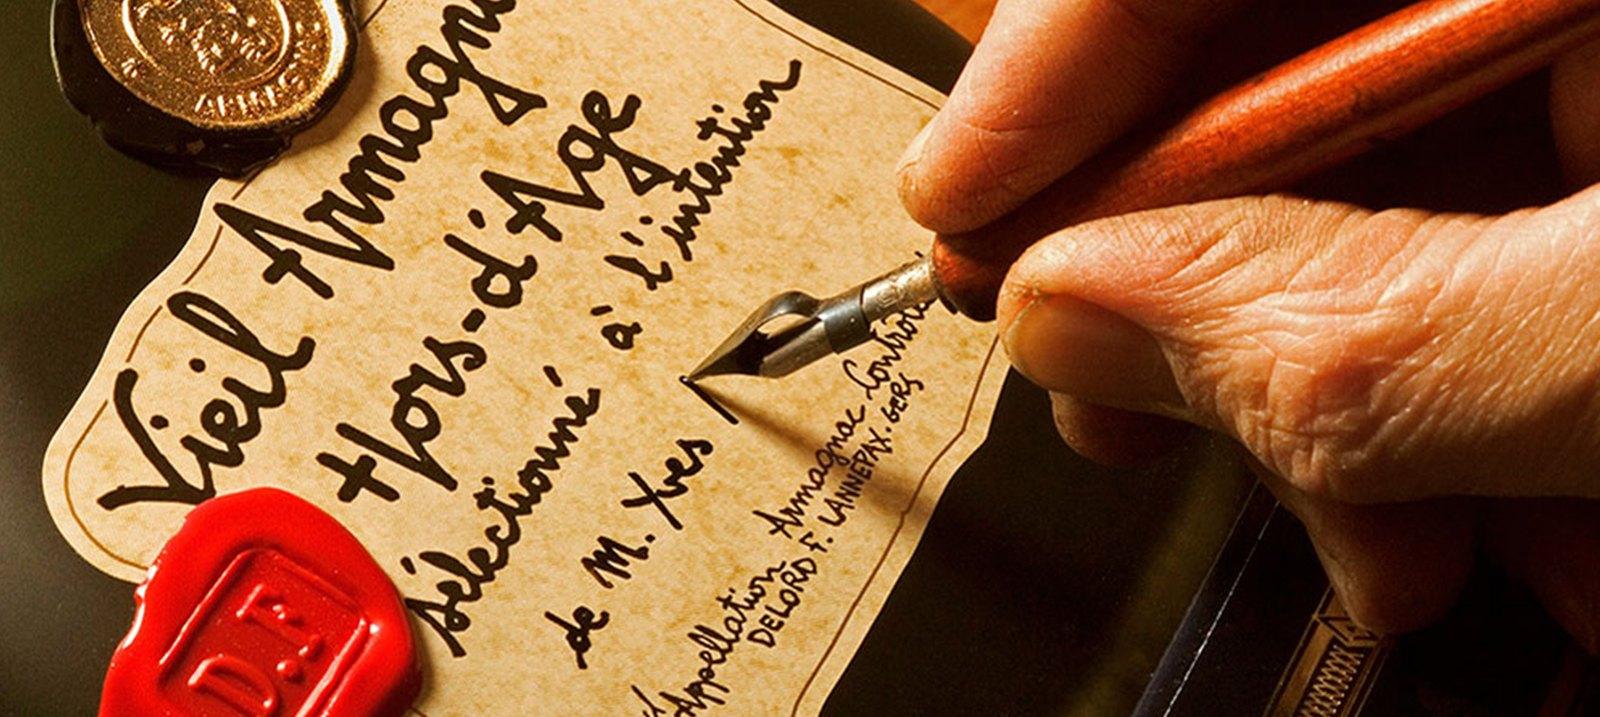 Vieil Armagn
Hors-d'Age
sélectionné à l'intention
de M. Yves
Appellation Armagnac Contrôlé
DELORD F. LANNEPAX. GERS
D.F